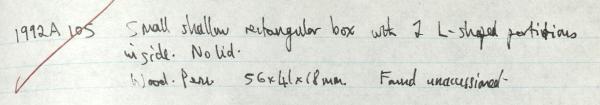 1992A 105 Small shallow rectangular box with 2 L-shaped partitions
inside. No lid.
Wood. Peru 56x41x18mm. Found unaccessioned.